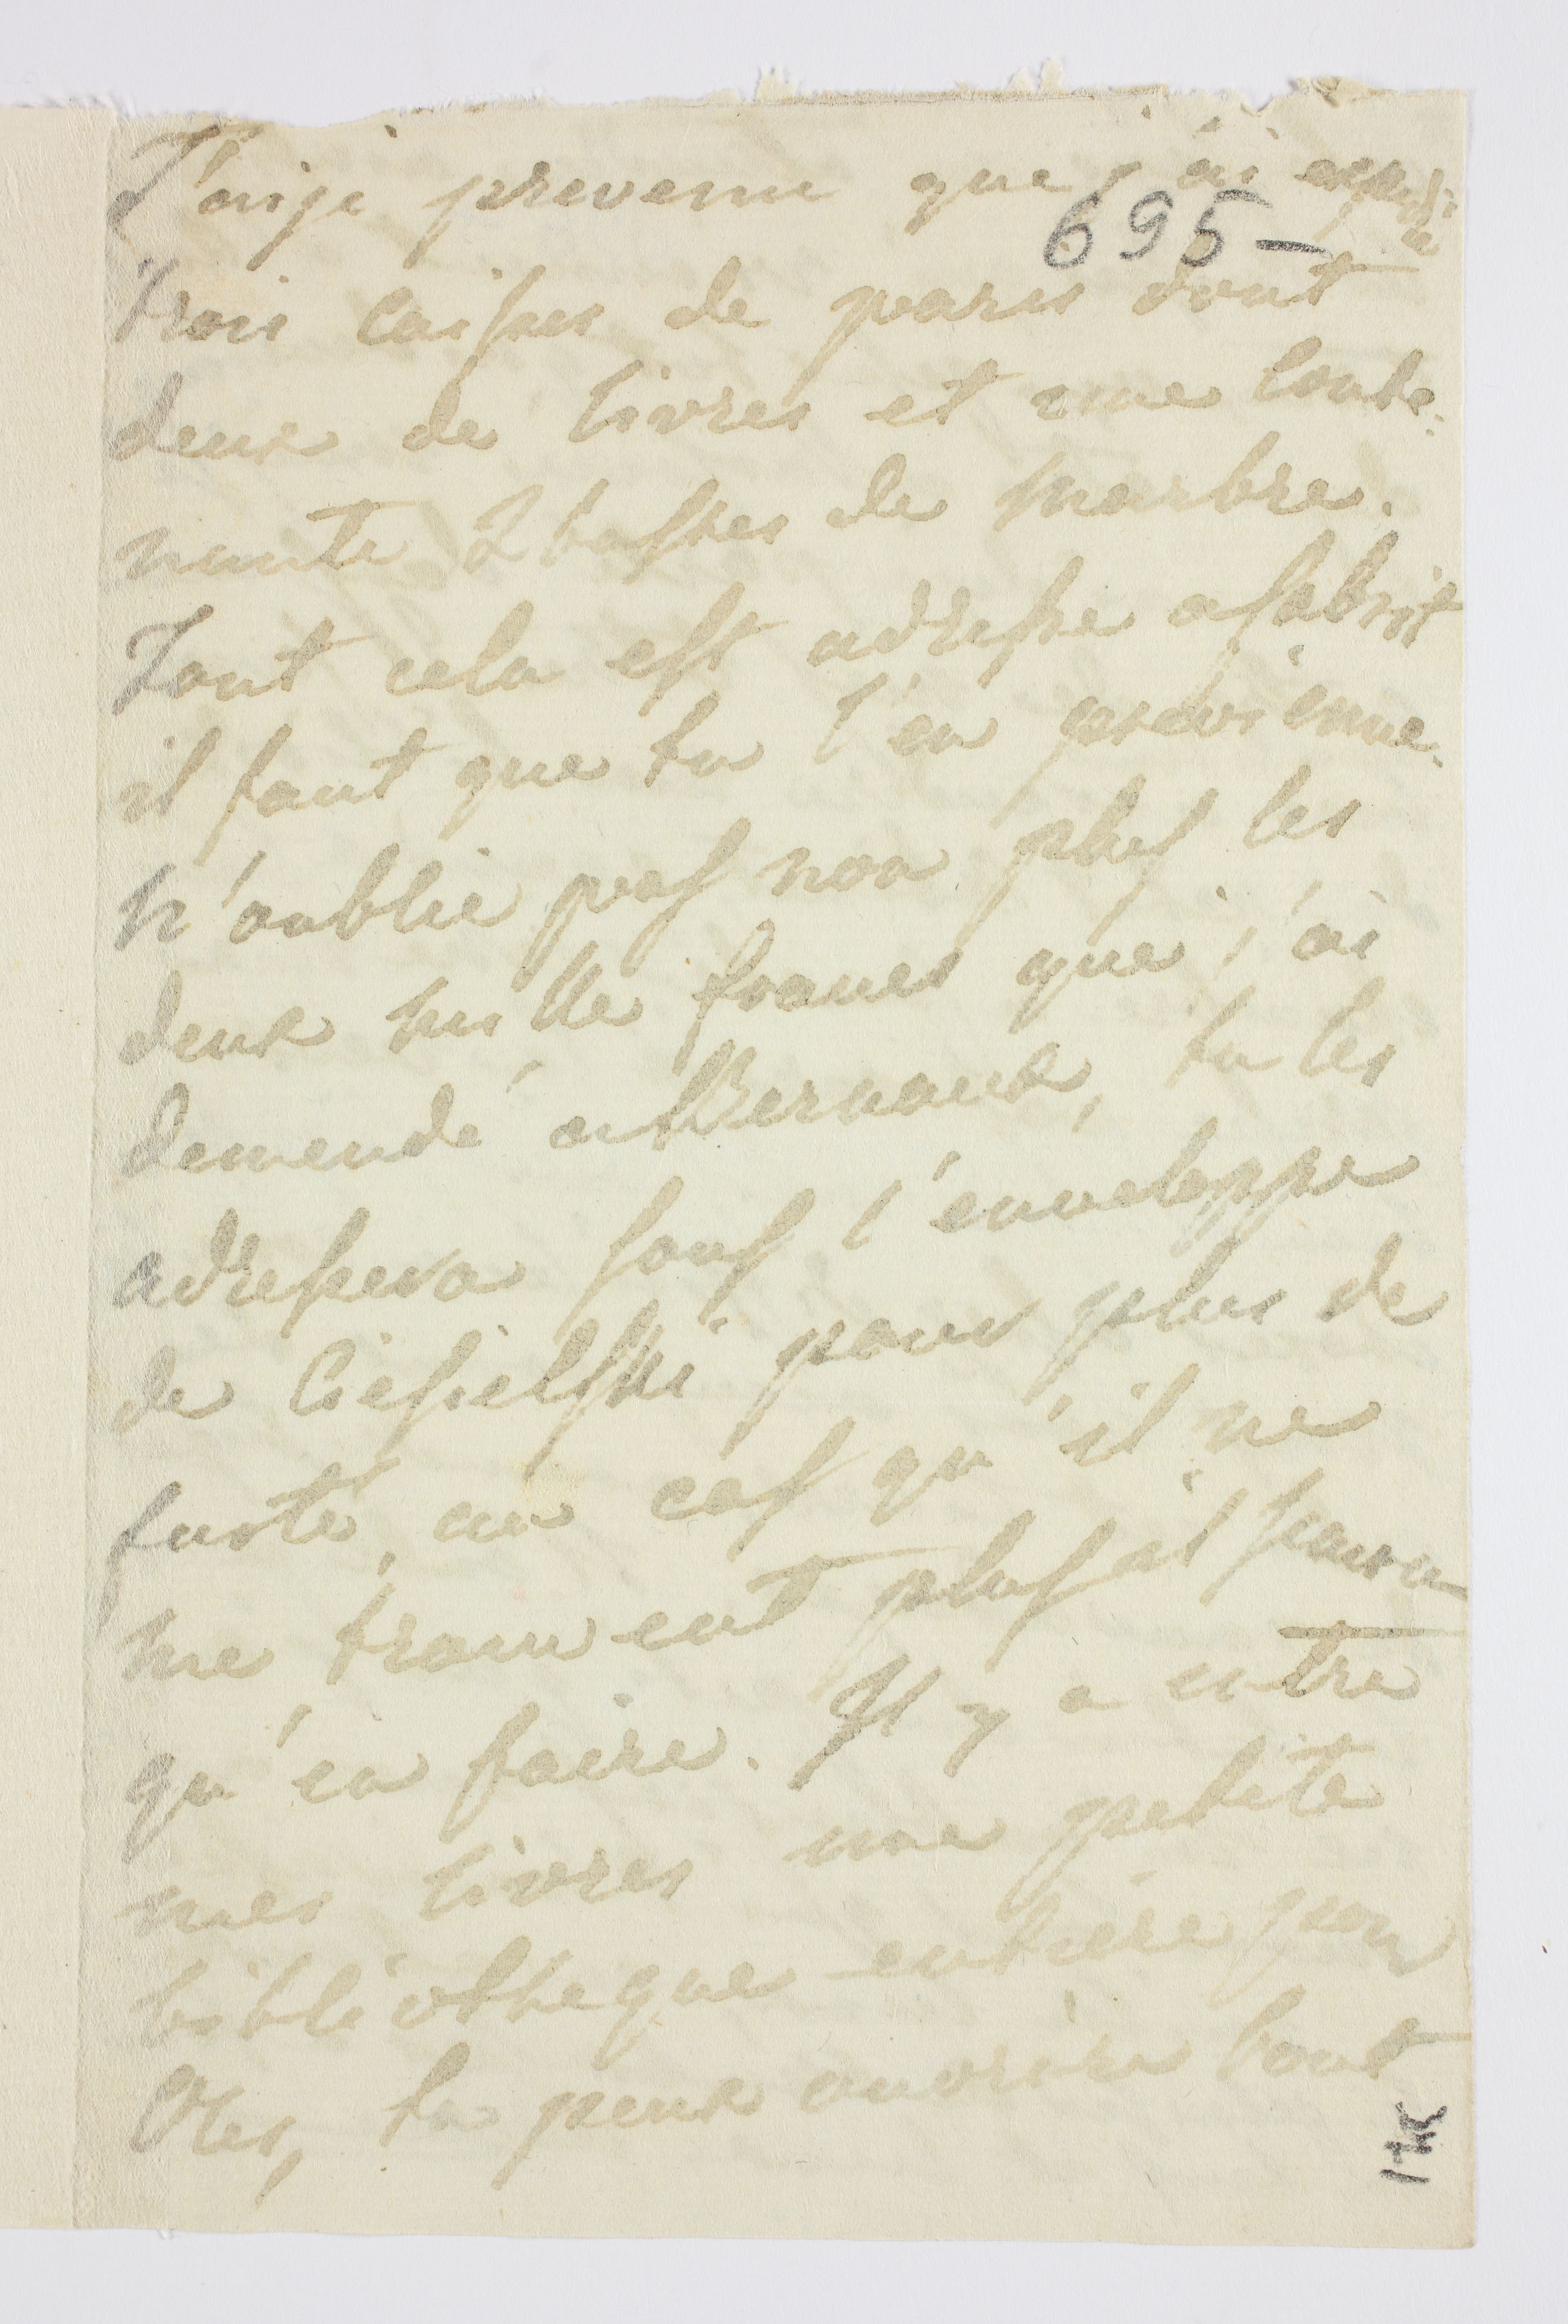 T'aije prevenu que j'ai expedié
695-
trois caisses de paris dont
deux de livres et une conte-
nante 2 basses de marbre.
Tout cela est adresse a
il faut que tu l'en previenne.
N'oublie pas non plus les
deux mille francs que j'ai
demendé a Bernaux, tu les
adressera sous l'enveloppe
de Ciesielski pour plus de
surté, au cas qu'il ne
me trouvent plus il saura
qu'en faire. Il y a entre
mes livres une petite
bibliotheque entiere pour
Oles, tu peux ouvrire tout